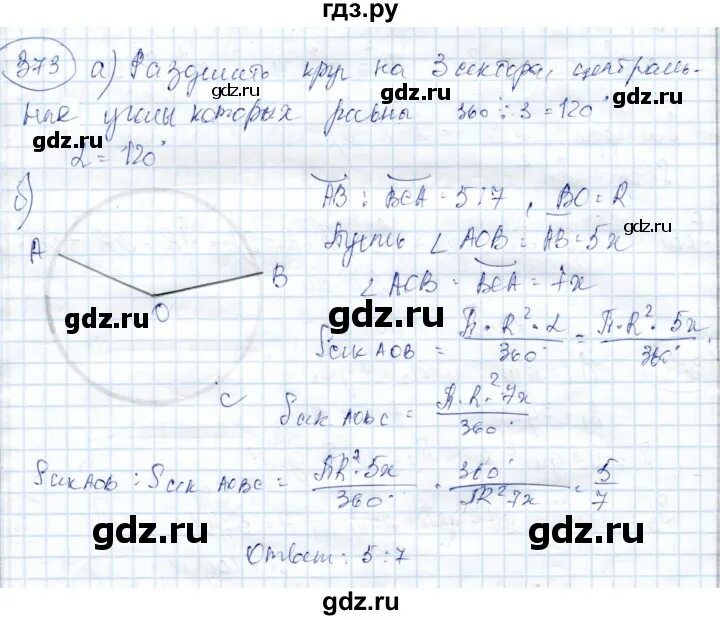 гдз.ру
373 а) Разделить круг на 3 сектора, централь-
gdz.ru gdz.ru
ные углы которых равны 360° : 3 = 120°
gdz.ru
α = 120°
б) AB : BCA = 5:7, BO = R
gdz.ru
A Пусть ∠AOB = AB = 5x
B ∠ACB = BCA = 7x
gdz.ru
O
gdz.ru
Sсек AOB = П·R²·α / 360° = П·R²·5x / 360°
C Sсек AOBC = П·R²·7x / 360°
Sсек AOB : Sсек AOBC = ПR²·5x / 360° · 360° / ПR²7x = 5/7
gdz.ru gdz.ru
Ответ: 5:7
gdz.ru